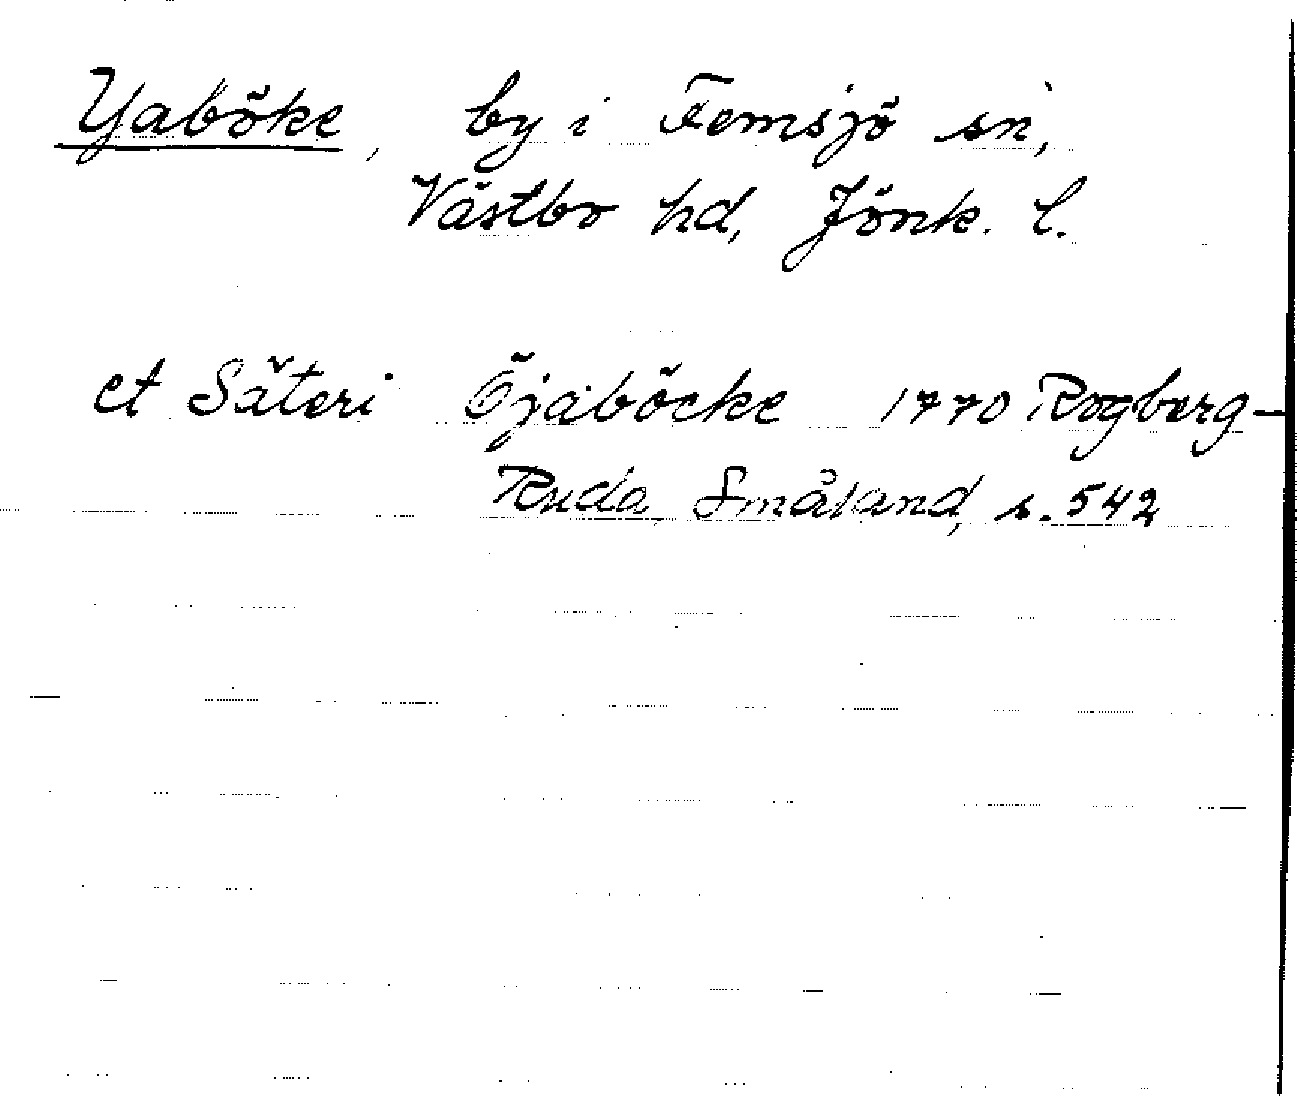 Yaböke, by i Femsjö sn,
Västbo hd, Jönk. l.
et Säteri Öjaböcke 1770 Rogberg-
Ruda Småland, s. 542